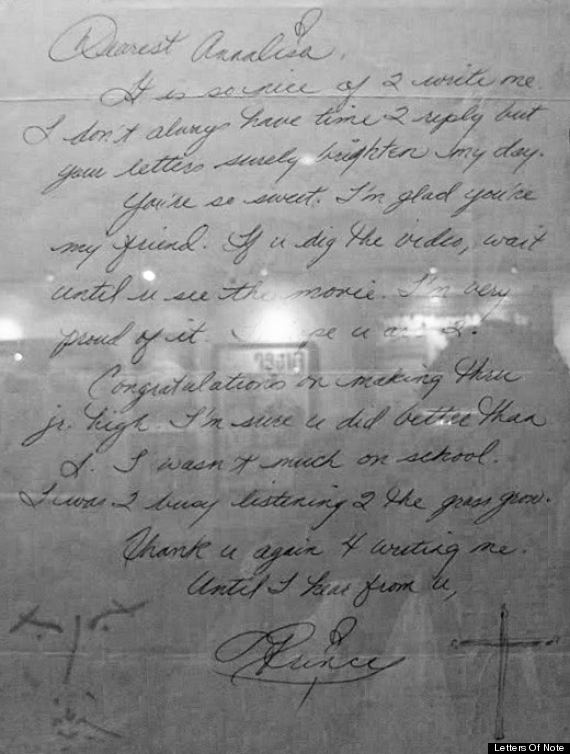 Dearest Annalisa,
It is so nice of 2 write me.
I don't always have time 2 reply but
your letters surely brighten my day.
You're so sweet. I'm glad you're
my friend. If u dig the video, wait
until u see the movie. I'm very
proud of it. u are 2.
Congratulations on making thru
jr. high. I'm sure u did better than
I. I wasn't much on school.
I was 2 busy listening 2 the grass grow.
Thank u again 4 writing me.
Until I hear from u,
Prince
Letters Of Note